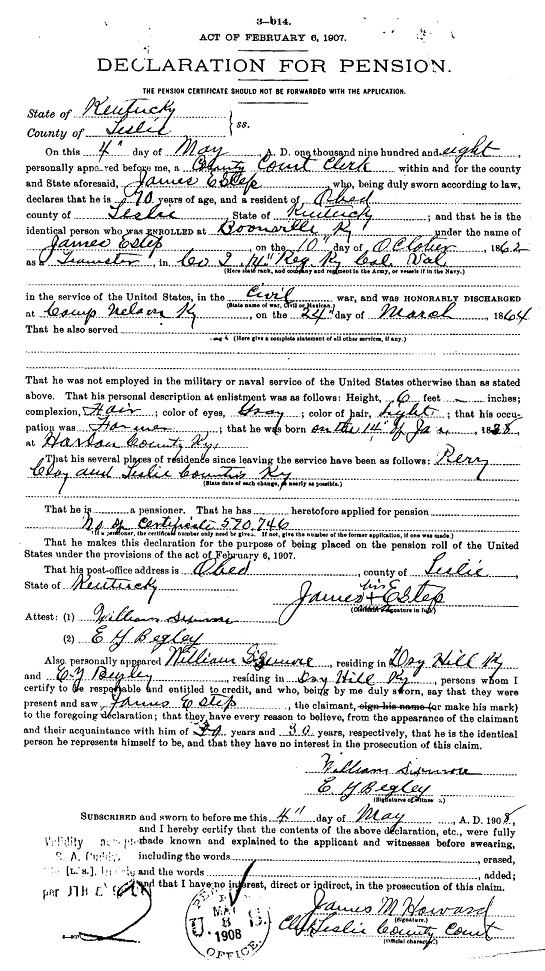 3—014.
ACT OF FEBRUARY 6, 1907.
DECLARATION FOR PENSION.
THE PENSION CERTIFICATE SHOULD NOT BE FORWARDED WITH THE APPLICATION.
State of Kentucky
County of Leslie } ss.
On this 4" day of May, A. D. one thousand nine hundred and eight
personally appeared before me, a County Court Clerk within and for the county
and State aforesaid, James Estep who, being duly sworn according to law,
declares that he is 70 years of age, and a resident of Obed
county of Leslie, State of Kentucky; and that he is the
identical person who was ENROLLED at Boonville Ky under the name of
James Estep, on the 10" day of October, 1862
as a Teamster, in Co I. 14" Reg. Ky Cal. Vol.
(Here state rank, and company and regiment in the Army, or vessels if in the Navy.)
in the service of the United States, in the Civil war, and was HONORABLY DISCHARGED
(State name of war, Civil or Mexican.)
at Camp Nelson Ky, on the 24" day of March, 1864
That he also served
(Here give a complete statement of all other services, if any.)
That he was not employed in the military or naval service of the United States otherwise than as stated
above. That his personal description at enlistment was as follows: Height, 6 feet — inches;
complexion, Fair; color of eyes, Gray; color of hair, Light; that his occu-
pation was Farmer; that he was born on the 14" of Jan, 1838
at Harlan County Ky.
That his several places of residence since leaving the service have been as follows: Perry
Clay and Leslie Counties Ky
(State date of each change, as nearly as possible.)
That he is a pensioner. That he has heretofore applied for pension
No of Certificate 570,746
(If a pensioner, the certificate number only need be given. If not, give the number of the former application, if one was made.)
That he makes this declaration for the purpose of being placed on the pension roll of the United
States under the provisions of the act of February 6, 1907.
That his post-office address is Obed, county of Leslie,
State of Kentucky
his
James + Estep
(Claimant's signature in full)
Attest: (1) William Sizemore
(2) E Y Begley
Also personally appeared William Sizemore, residing in Dry Hill Ky
and E. Y Begley, residing in Dry Hill Ky, persons whom I
certify to be respectable and entitled to credit, and who, being by me duly sworn, say that they were
present and saw James Estep, the claimant, sign his name (or make his mark)
to the foregoing declaration; that they have every reason to believe, from the appearance of the claimant
and their acquaintance with him of years and 30 years, respectively, that he is the identical
person he represents himself to be, and that they have no interest in the prosecution of this claim.
William Sizemore
E Y Begley
(Signatures of witnesses.)
SUBSCRIBED and sworn to before me this 4" day of May, A. D. 1908,
and I hereby certify that the contents of the above declaration, etc., were fully
made known and explained to the applicant and witnesses before swearing,
including the words erased,
[L. S.] and the words added;
and that I have no interest, direct or indirect, in the prosecution of this claim.
Validity accepted
per
PENSION
MAY
8
1908
U. S.
OFFICE.
James M Howard
(Signature.)
Clk Leslie County Court
(Official character.)